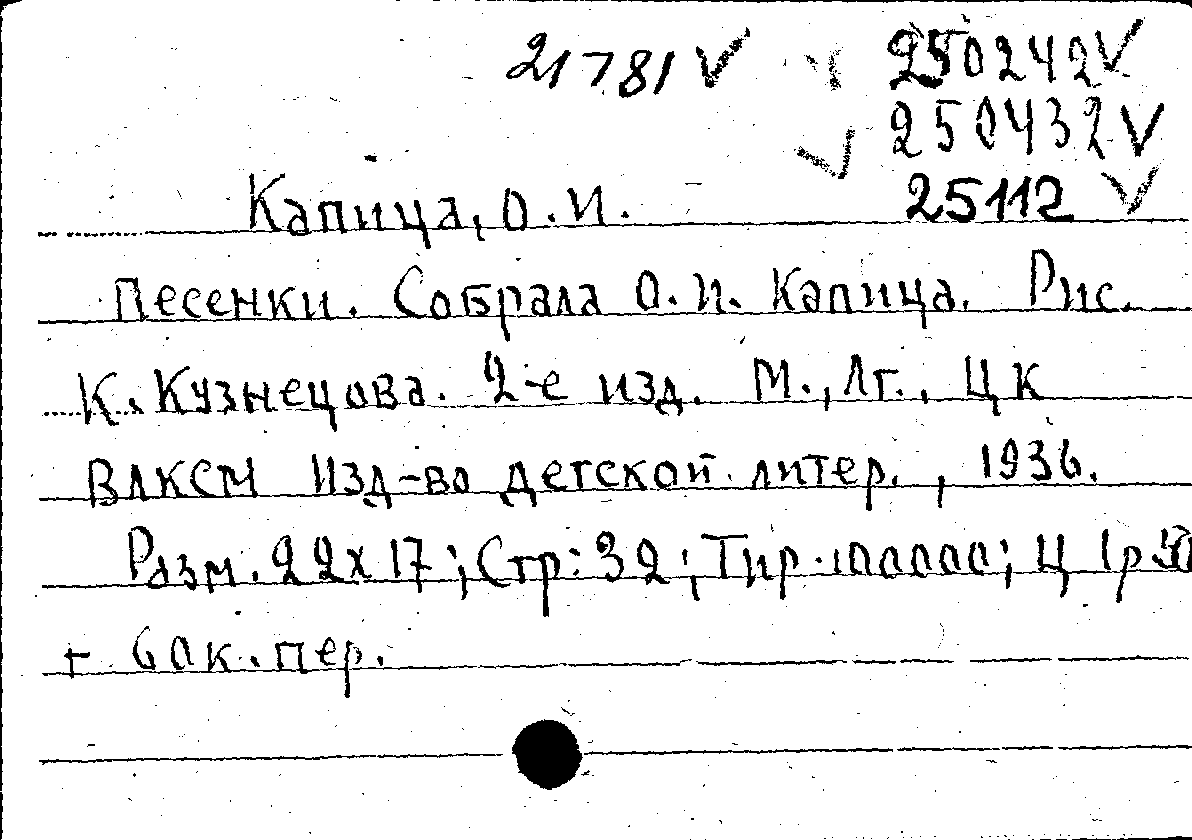 21781 V V 250242 V
V 250432 V
25112 V
Капица, О.И.
Песенки. Собрала О.И. Капица. Рис.
К. Кузнецова. 2-е изд. М., Лг., ЦК
ВЛКСМ Изд-во детской литер., 1936.
Разм. 22х17; Стр: 32; Тир. 100000; Ц 1р.50
+ 60к. пер.